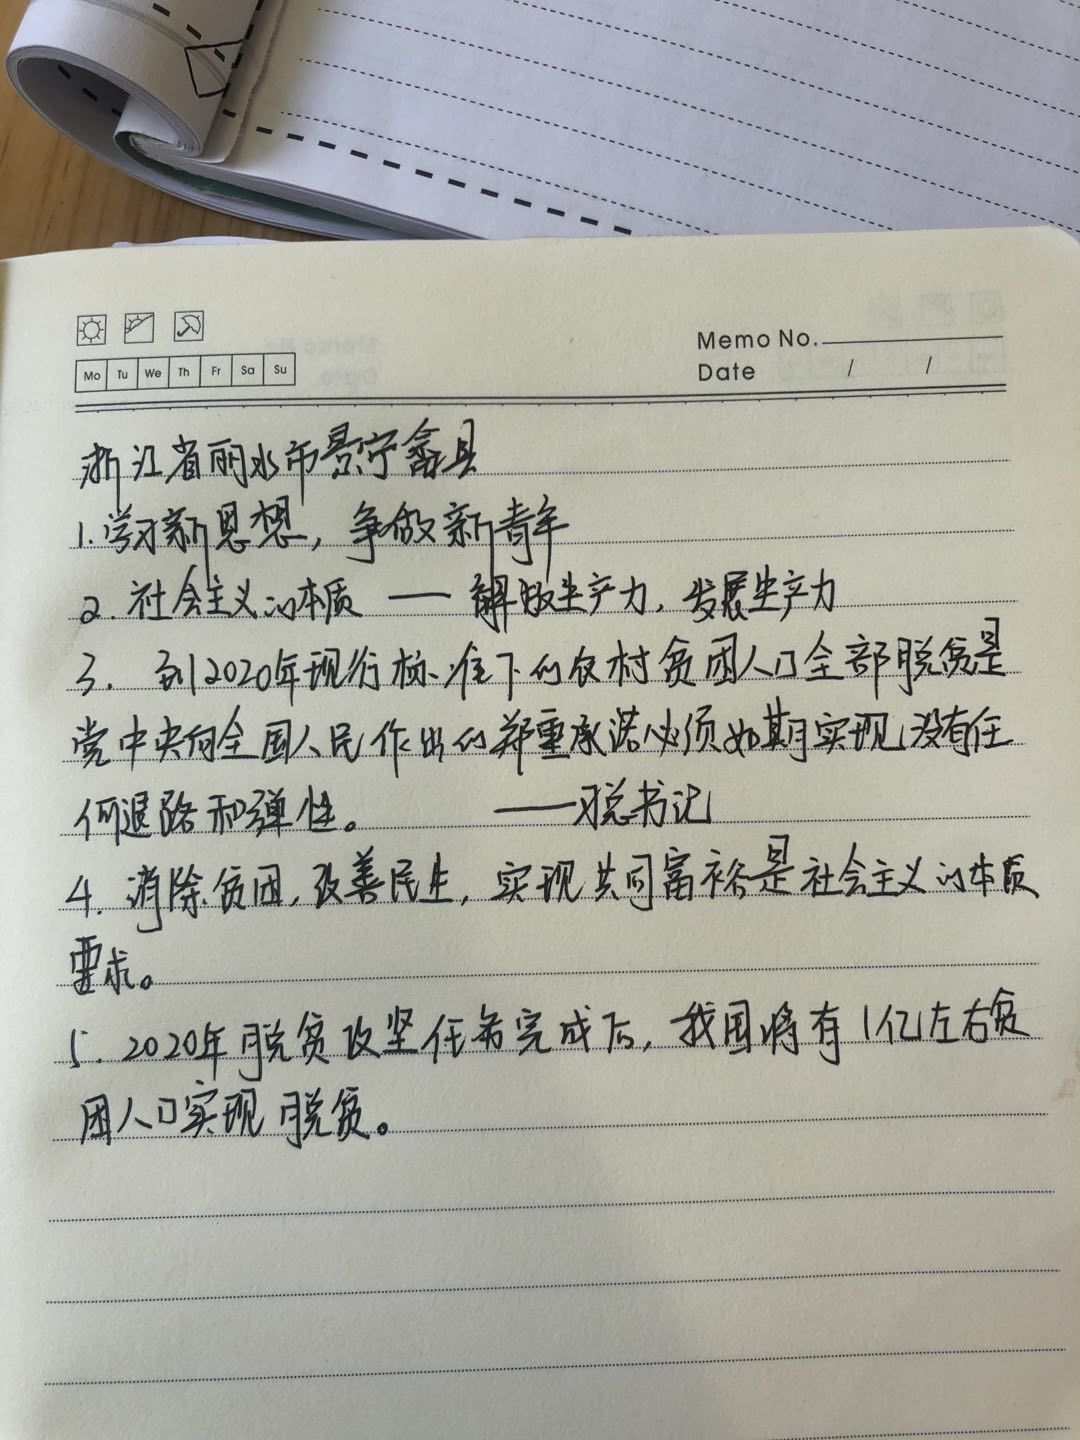 Memo No.
Mo Tu We Th Fr Sa Su
Date / /
浙江省丽水市景宁畲县
1.学习新思想，争做新青年
2.社会主义的本质——解放生产力，发展生产力
3.到2020年现行标准下的农村贫困人口全部脱贫是
党中央向全国人民作出的郑重承诺必须如期实现,没有任
何退路和弹性。 ——习总书记
4.消除贫困，改善民生，实现共同富裕是社会主义的本质
要求。
5.2020年脱贫攻坚任务完成后，我国将有1亿左右贫
困人口实现脱贫。